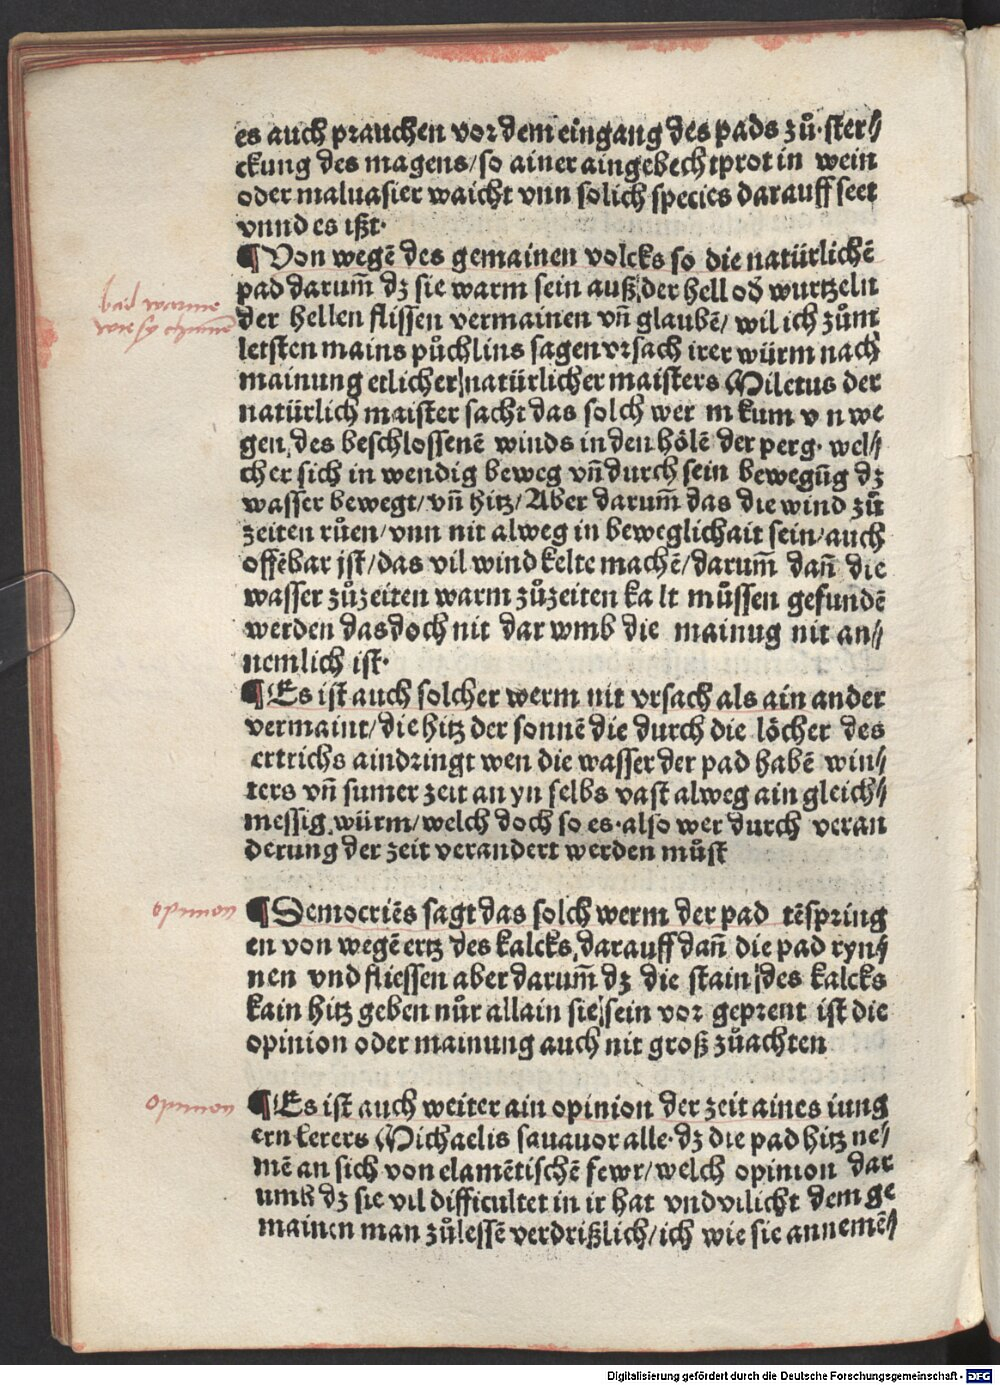 es auch prauchen vor dem eingang des pads zů·ster⸗
ckung des magens/so ainer aingebecht prot in wein
oder maluasier waicht vnn solich species darauff seet
vnnd es ißt·
¶Von wegẽ des gemainen volcks so die natürlichẽ
pad darum̃ dz sie warm sein auß der hell od̕ wurtzeln
der hellen flissen vermainen vñ glaubẽ/ wil ich zům
letsten mains půchlins sagen vrsach irer würm nach
mainung etlicher natürlicher maisters Miletus der
natürlich maister sacht das solch wer m kum v n we
gen des beschlossenẽ winds in den hölẽ der perg· wel⸗
cher sich in wendig beweg vñ durch sein bewegũg dz
wasser bewegt/vñ hitz/Aber darum̃ das die wind zů
zeiten růen/vnn nit alweg in beweglichait sein/auch
offẽbar jst/das vil wind kelte machẽ/darum̃ dañ die
wasser zůzeiten warm zůzeiten ka lt müssen gefundẽ
werden das doch nit dar wmb die mainug nit an⸗
nemlich ist·
¶Es ist auch solcher werm nit vrsach als ain ander
vermaint/die hitz der sonnẽ die durch die löcher des
ertrichs aindringt wen die wasser der pad habẽ win⸗
ters vñ sumer zeit an yn selbs vast alweg ain gleich⸗
messig würm/welch doch so es·also wer durch veran
derung der zeit verandert werden můst
¶Democriẽs sagt das solch werm der pad tẽspring
en von wegẽ ertz des kalcks darauff dañ die pad ryn⸗
nen vnd fliessen aber darum̃ dz die stain des kalcks
kain hitz geben nůr allain sie sein vor geprent ist die
opinion oder mainung auch nit groß zůachten
¶Es ist auch weiter ain opinion der zeit aines iung
ern lerers Michaelis sauauor alle·dz die pad hitz ne⸗
mẽ an sich von elamẽtischẽ fewr/welch opinion dar
umb dz sie vil difficultet in ir hat vnd vilicht dem ge
mainen man zůlessẽ verdrißlich/ich wie sie annemẽ⸗
bad warme
wie sy chumẽ
opinion
opinion
Digitalisierung gefördert durch die Deutsche Forschungsgemeinschaft - DFG